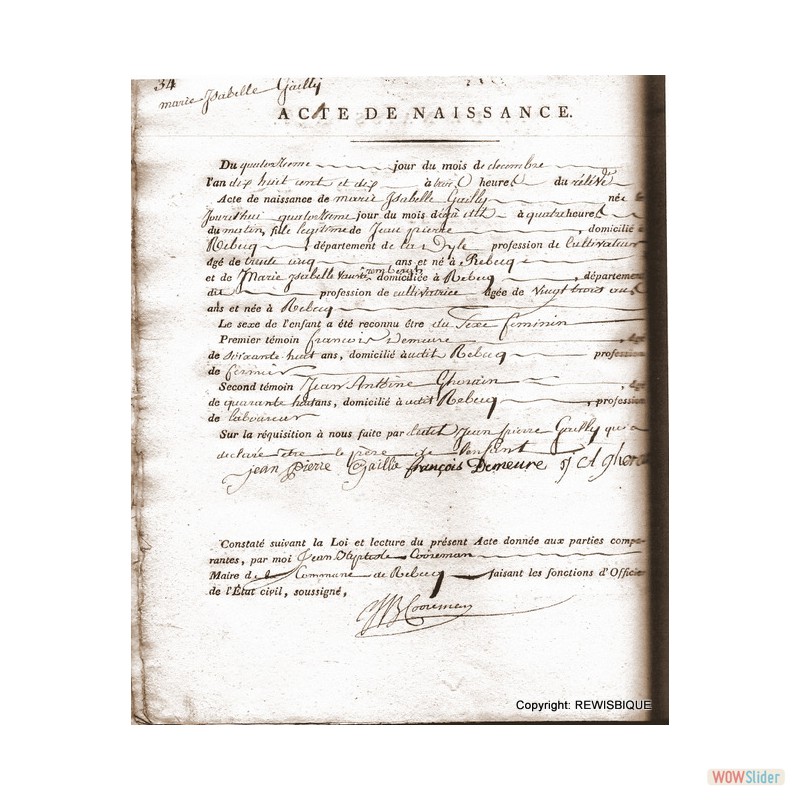 34
marie Isabelle Gailly
ACTE DE NAISSANCE.
Du quatorzieme jour du mois de decembre
l'an dix huit cent et dix à trois heures du relevée
Acte de naissance de marie Isabelle Gailly née le
Jourd'hui quatorzieme jour du mois déjà dit à quatre heures
du matin, fille legitime de Jean pierre, domicilié à
Rebecq, département de la Dyle profession de Cultivateur
âgé de trente cinq ans et né à Rebecq
et de Marie Isabelle domiciliée à Rebecq, départemen
dit profession de cultivatrice âgée de vingt trois ans
ans et née à Rebecq
Le sexe de l'enfant a été reconnu être du Sexe feminin
Premier témoin françois Demeure, âgé
de soixante huit ans, domicilié audit Rebecq profession
de fermier
Second témoin Jean Antoine, âgé
de quarante huit ans, domicilié à audit Rebecq, profession
de laboureur
Sur la réquisition à nous faite par ledit Jean pierre Gailly qui a
declaré être le père de l'enfant
jean pierre Gaillie françois Demeure
Constaté suivant la Loi et lecture du présent Acte donnée aux parties compa-
rantes, par moi Jean Cooreman
Maire de la Commune de Rebecq faisant les fonctions d'Officier
de l'État civil, soussigné,
JB Cooreman
Copyright: REWISBIQUE
WOWSlider